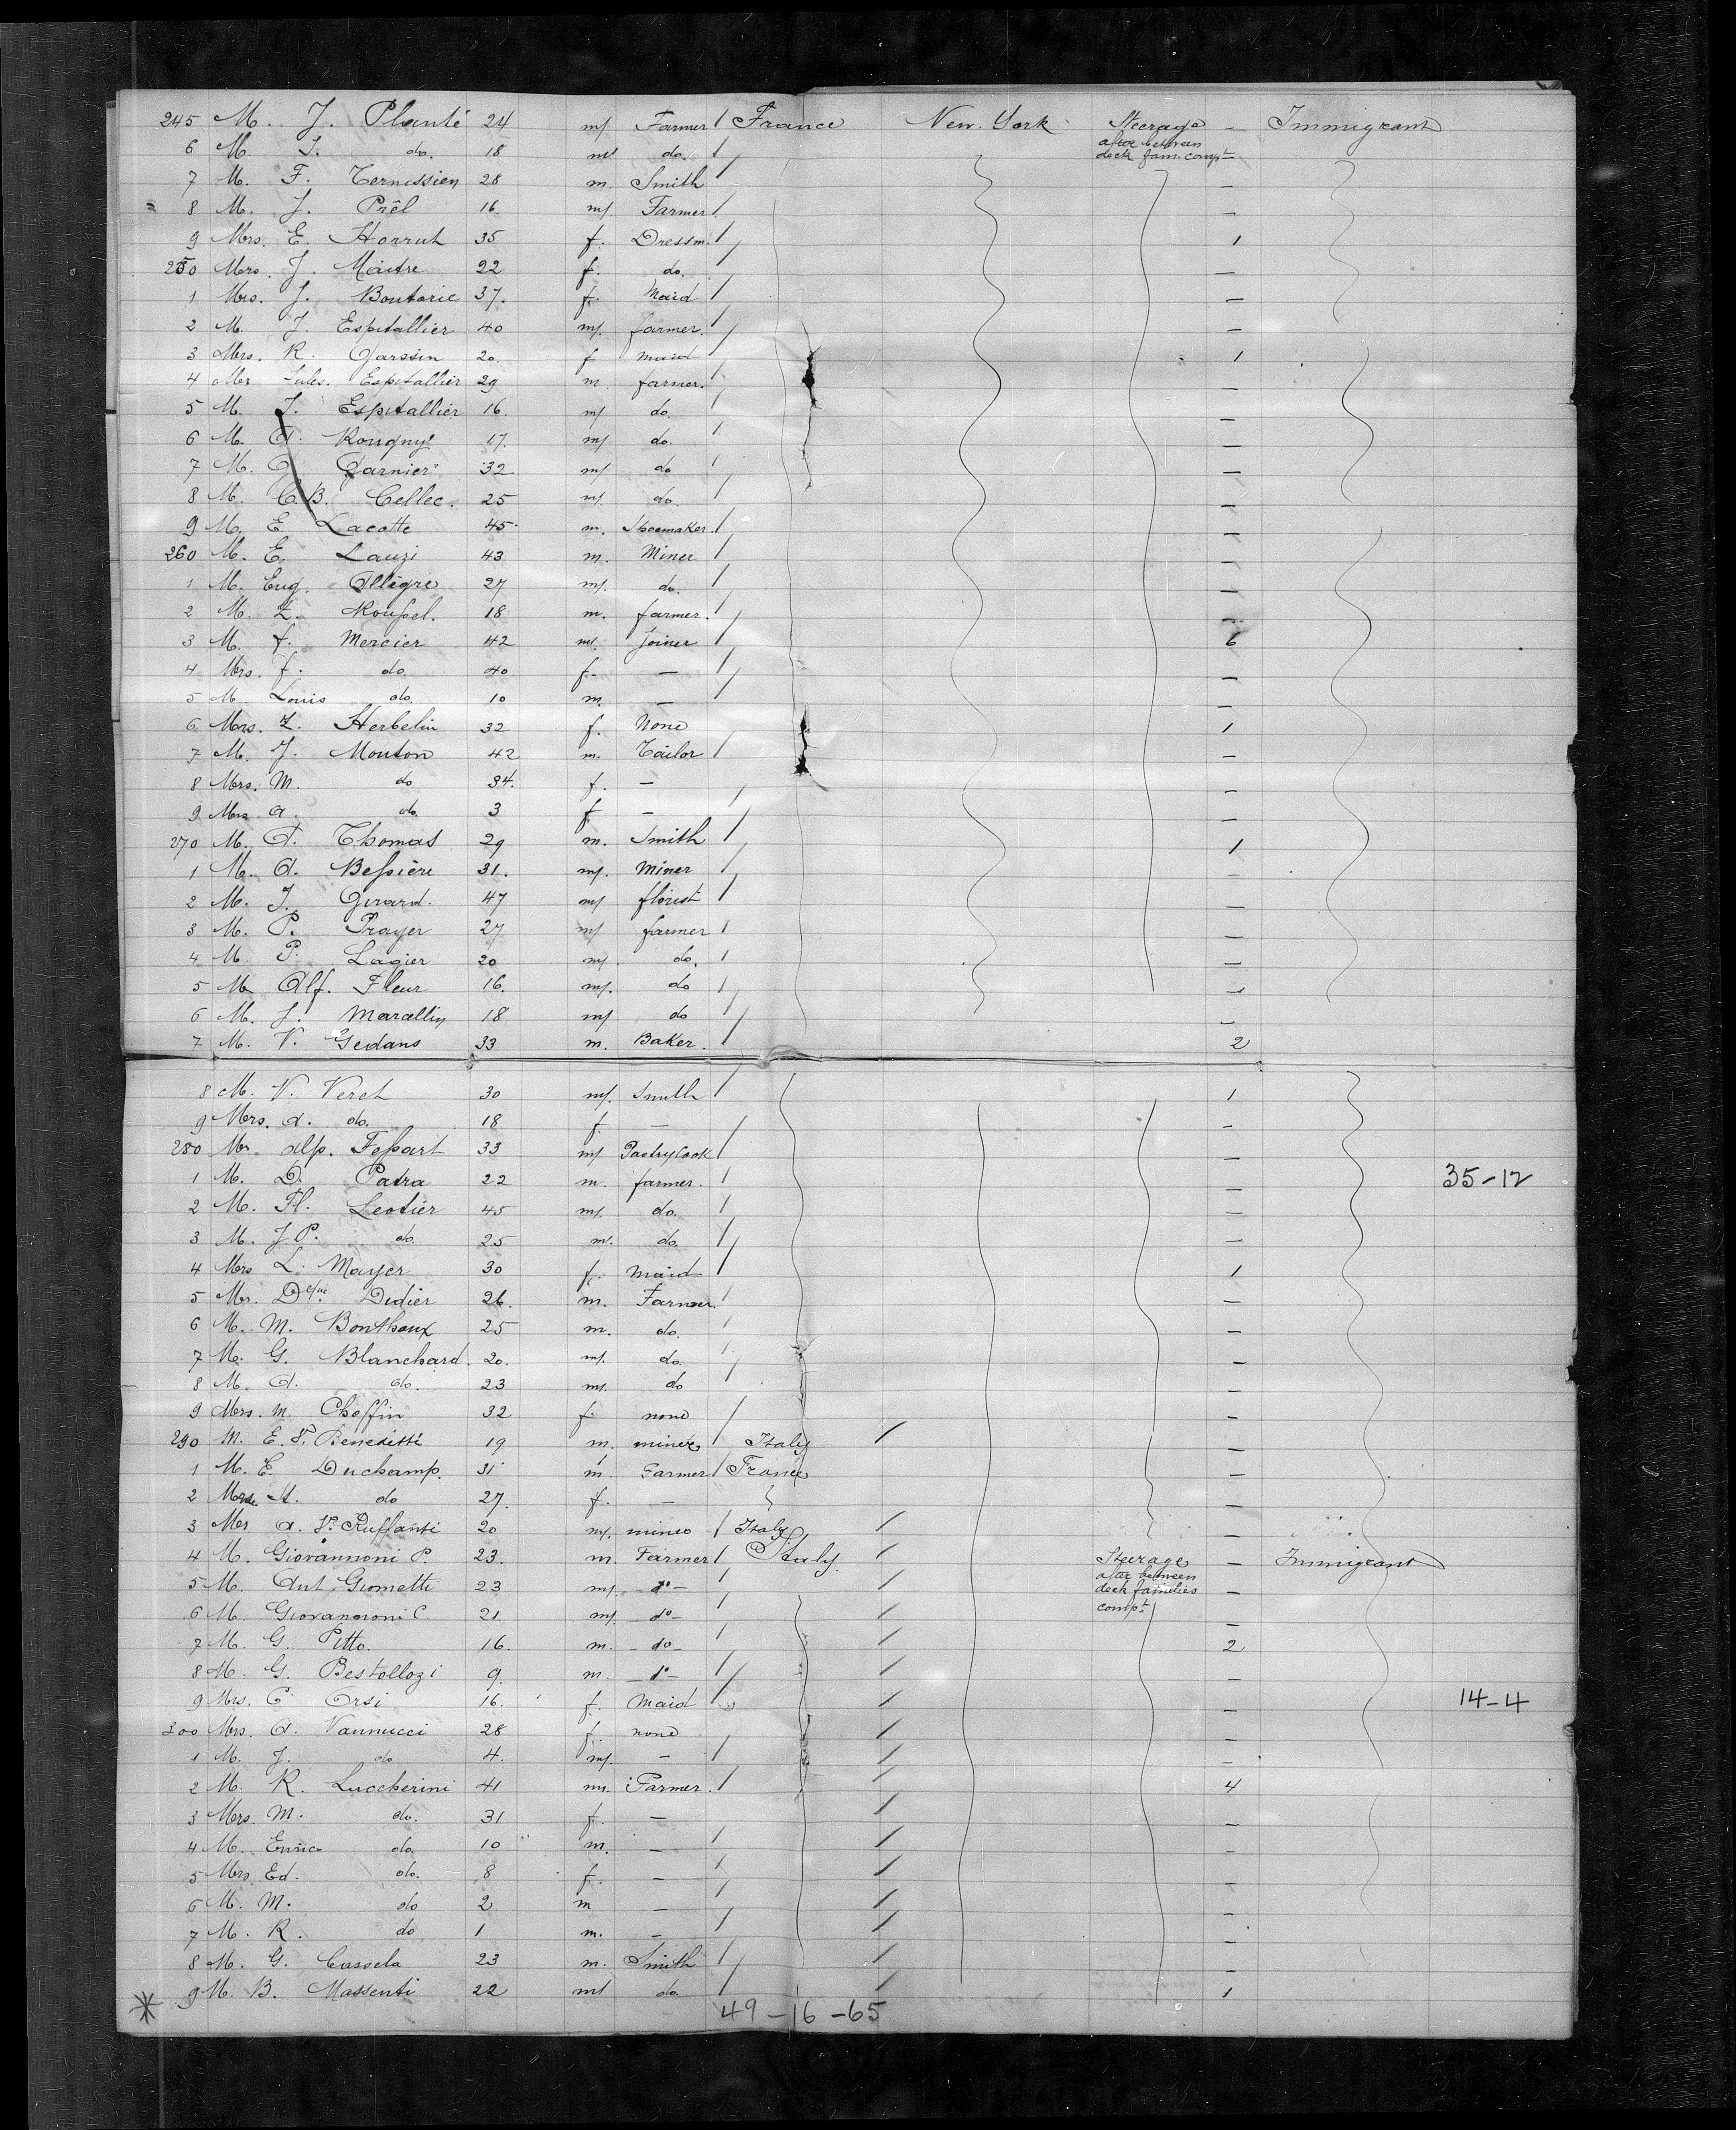 245 M. J. Planté 24 m Farmer France New York Steerage — Immigrant
6 M. J. do. 18 m do. after between deck fam. compt —
7 M. F. Ternissien 28 m. Smith —
8 M. J. Prêl 16. m Farmer —
9 Mrs. E. Horrut 35 f. Dressm. 1
250 Mrs. J. Maitre 22 f. do. —
1 Mrs. J. Boutaric 37. f. Maid —
2 M. J. Espitallier 40 m. farmer. —
3 Mrs. R. Garssin 20. f maid 1
4 Mr Jules. Espitallier 29 m. farmer. —
5 M. J. Espitallier 16. m do. —
6 M. A. Rougny 17. m do. —
7 M. Garnier 32 m do —
8 M. C. B. Cellec. 25 m do. —
9 M. E. Lacotte 45 m. Shoemaker. —
260 M. E. Lauzi 43 m. Miner —
1 M. Eug. Allègre 27 m. do. —
2 M. Z. Roussel. 18 m. farmer. —
3 M. f. Mercier 42 m. Joiner 6
4 Mrs. f. do. 40 f. — —
5 M. Louis do. 10 m. — —
6 Mrs. Z. Herbelin 32 f. None 1
7 M. J. Mouton 42 m. Tailor —
8 Mrs. M. do 34. f. — —
9 Mrs a. do. 3 f — —
270 M. A. Thomas 29 m. Smith 1
1 M. A. Bessière 31. m. Miner —
2 M. J. Girard. 47 m florist —
3 M. P. Prayer 27 m farmer —
4 M. P. Lagier 20 m. do. —
5 M. Alf. Fleur 16. m. do —
6 M. J. Marcellin 18 m do —
7 M. V. Gedans 33 m. Baker. 2
8 M. V. Veret 30 m. Smith 1
9 Mrs. a. do. 18 f. — —
280 Mr. alp. Fessart 33 m Pastrycook —
1 M. D. Patra 22 m. farmer. — 35-12
2 M. Fl. Leotier 45 m. do. —
3 M. J P. do. 25 m. do. —
4 Mrs L. Mayer 30 f. Maid 1
5 Mr. Dque Didier 26. m. Farmer. —
6 M. M. Bonthoux 25 m. do. —
7 M. G. Blanchard. 20. m. do. —
8 M. A. do. 23 m. do —
9 Mrs. M. Choffin 32 f. none —
290 M. E. F. Benedetti 19 m. miner Italy —
1 M. E. Duchamp. 31 m. Farmer France —
2 M. do 27. f. — —
3 Mr a. Ruffanti 20 m. miner Italy —
4 M. Giovannoni P. 23. m. Farmer Italy Steerage — Immigrant
5 M. Ant. Giometti 23 m. do — after between deck families compt —
6 M. Giovannoni C. 21. m. do — —
7 M. G. Pitto. 16. m. do — 2
8 M. G. Bestollozi 9. m. do — —
9 Mrs. C. Orsi 16. f. Maid — 14-4
300 Mrs. A. Vannucci 28 f. none —
1 M. J. do 4. m. — —
2 M. R. Luccherini 41 m. Farmer. 4
3 Mrs. M. do. 31 f. — —
4 M. Enrico do. 10 m. — —
5 Mrs Ed. do. 8 f. — —
6 M. M. do 2 m — —
7 M. R. do 1 m. — —
8 M. G. Cassela 23 m. Smith —
9 M. B. Massenti 22 m do. 1
49-16-65